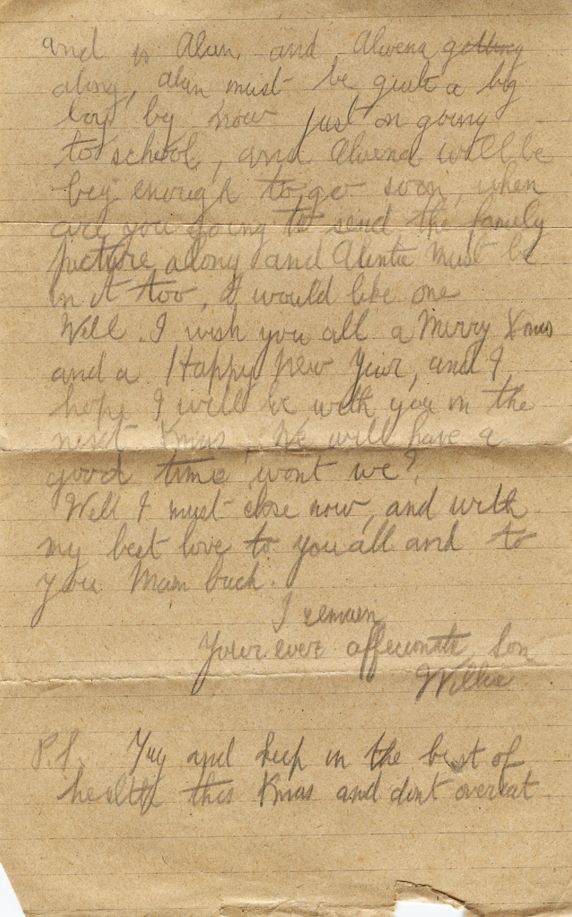 and is Alun, and Alwena getting
along, Alun must be quite a big
boy by now just on going
to school, and Alwena will be
big enough to go soon, when
are you going to send the family
picture along and Auntie must be
in it too, I would like one
Well. I wish you all a Merry Xmas
and a Happy New Year, and I
hope I will be with you on the
next Xmas. We will have a
good time wont we?
Well I must close now, and with
my best love to you all and to
you Mam bach.
I remain
Your ever affecionate Son
Willie
P.S. Try and keep in the best of
health this Xmas and dont overeat